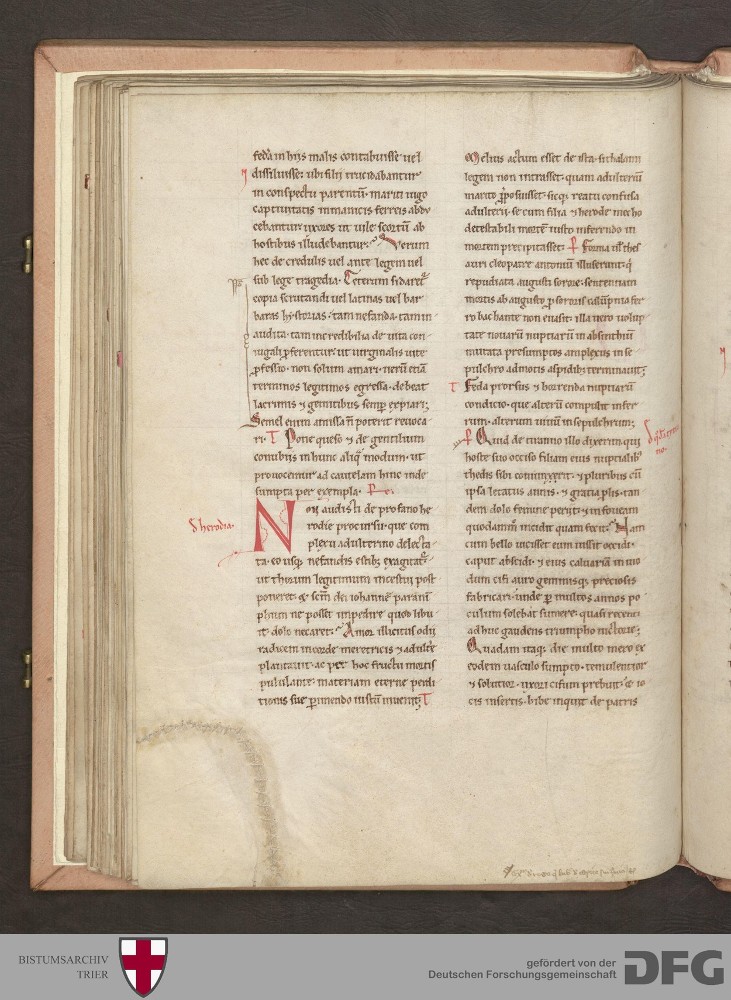 feda in hijs malis contabuisse uel
dissiluisse; ubi filii trucidabantur
in conspectu parentū. mariti iugo
captiuitatis in manicis ferreis abdu
cebantur. uxores in uile scortū ab
hostibus illudebantur; Uerum
hec de credulis uel ante legem uel
sub lege tragedia. Ceterum si daret᷑
copia scrutandi uel latinas uel bar
baras hystorias. tam nefanda. tam in
audita. tam incredibilia de uita con
iugali ꝓferentur. ut uirginalis uite
ꝓfessio. non solum amari. uerū etiā
terminos legitimos egressa. debeat
lacrimis & gemitibus semꝑ expiari;
Semel enim amissa n̄ poterit reuoca
ri. Pone queso & de gentilium
conubiis in hunc aliq̄ modum. ut
prouocemur ad cautelam hinc inde
sumpta per exempla.
Non audisti de profano he
rodie procursu. que com
plexu adulterino delecta
ta. eo usq; nefandis estibꝫ exagitat᷑.
ut thorum legitimum incestui post
poneret. & sc̄m dei iohannē parani
phum ne posset impedire quod libu
it. dolo necaret; Amor illicitus odii
radicem in corde meretricis & adultere
plantauit. ac per hoc fructū mortis
pululante. materiam eterne perdi
tionis sue ꝑimendo iustū inuenit;
d herodia.
Melius actum esset de ista. si thalami
legem non intrasset. quam adulterū
marito ꝓposuisset. sicq; reatu confusa
adulterii. se cum filia & herode mecho
detestabili mortē iusto inferendo in
mortem precipitasset; Forma uł thes
auri cleopatre antoniū illuserunt. q̄
repudiata augusti sorore. sententiam
mortis ab augusto ꝓ sororis calūpnia fer
ro bachante non euasit. illa uero uolup
tate nouarū nuptiarū in absinthiū
mutata presumptos amplexus in se
pulchro admotis aspidibꝫ terminauit;
Feda prorsus & horrenda nuptiarū
condicio. que alterū compulit infer
rum. alterum uiuū in sepulchrum;
Quid de tiranno illo dixerim. qui
hoste suo occiso filiam eius nuptialibꝫ
thedis sibi coniunxerit. & pluribus cū
ipsa letatus annis. & gratia plis. tan
dem dolo femine periit. & in foueam
quodāmō incidit quam fecit; Nam
cum bello uicisset eum iussit occidi.
caput abscidi. & eius caluariam in mo
dum cifi auro gemmisq; preciosis
fabricari. unde ꝑ multos annos po
culum solebat sumere. quasi recenti
adhuc gaudens triumpho uictorie;
Quadam itaq; die multo mero ex
eodem uasculo sumpto. temulentior
& solutior. uxori cifum prebuit. & io
cis insertis. bibe inquit de patris
BISTUMSARCHIV
TRIER
gefördert von der
Deutschen Forschungsgemeinschaft
DFG